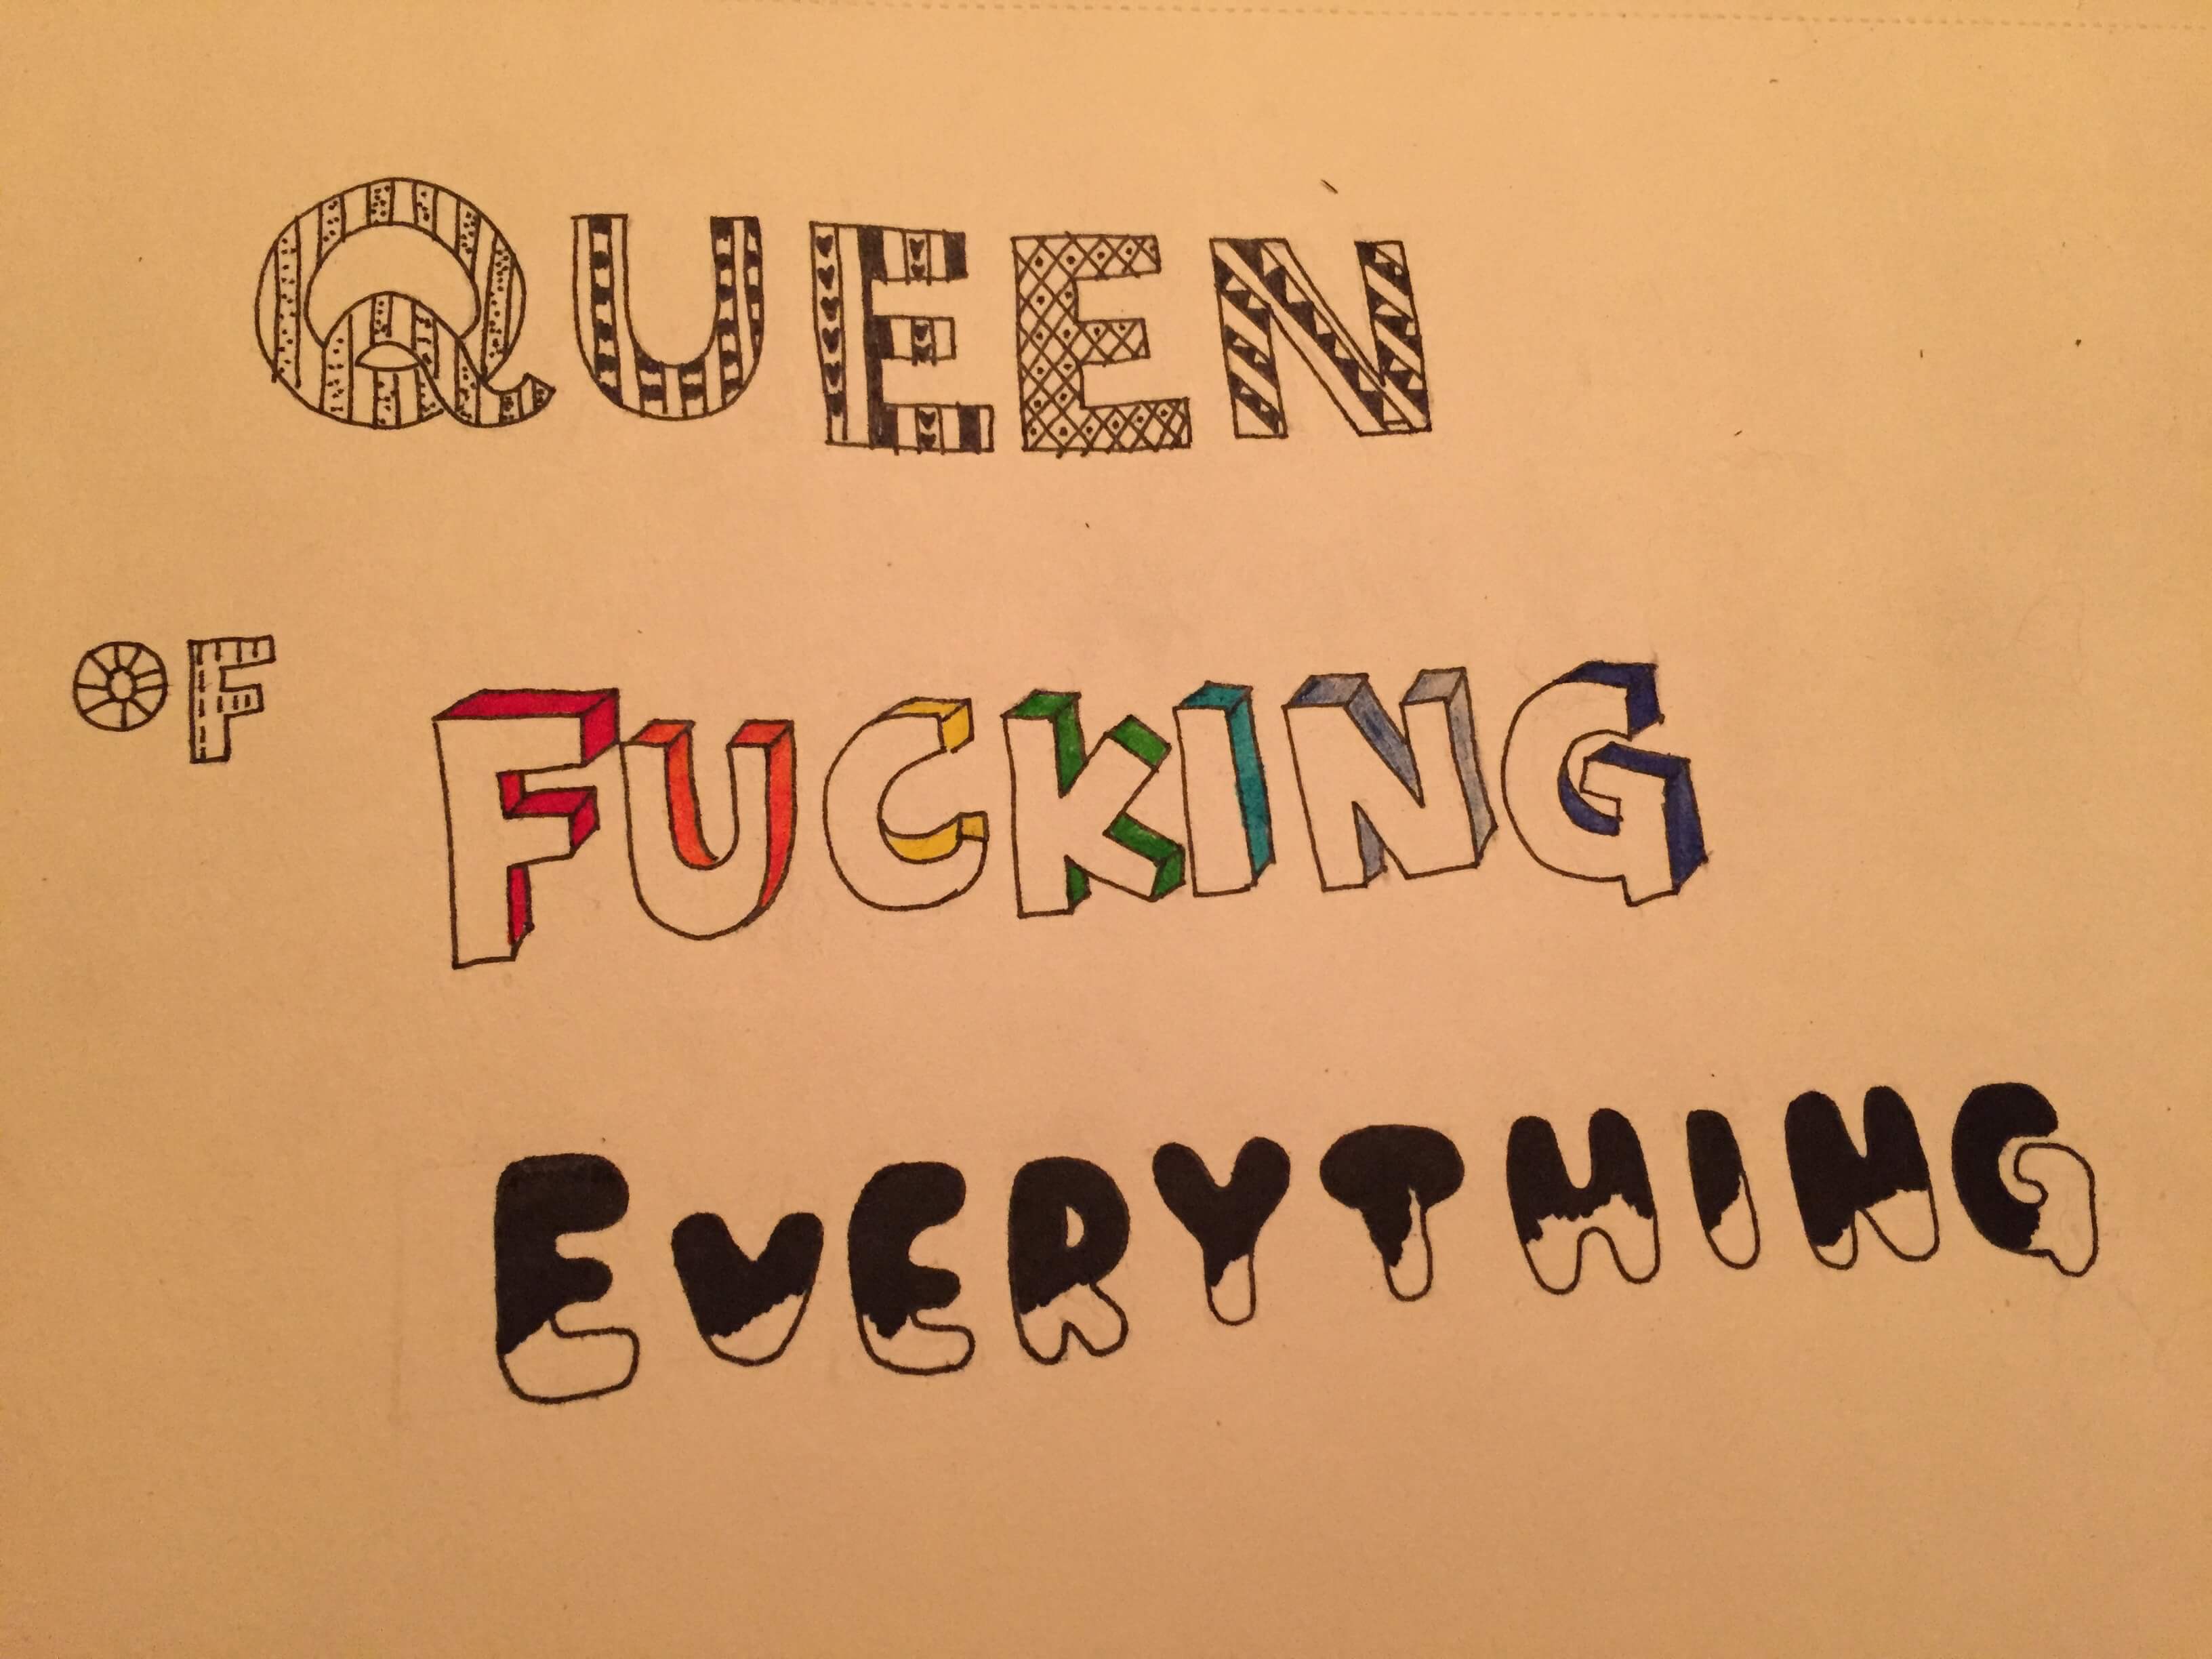 QUEEN
OF FUCKING
EVERYTHING